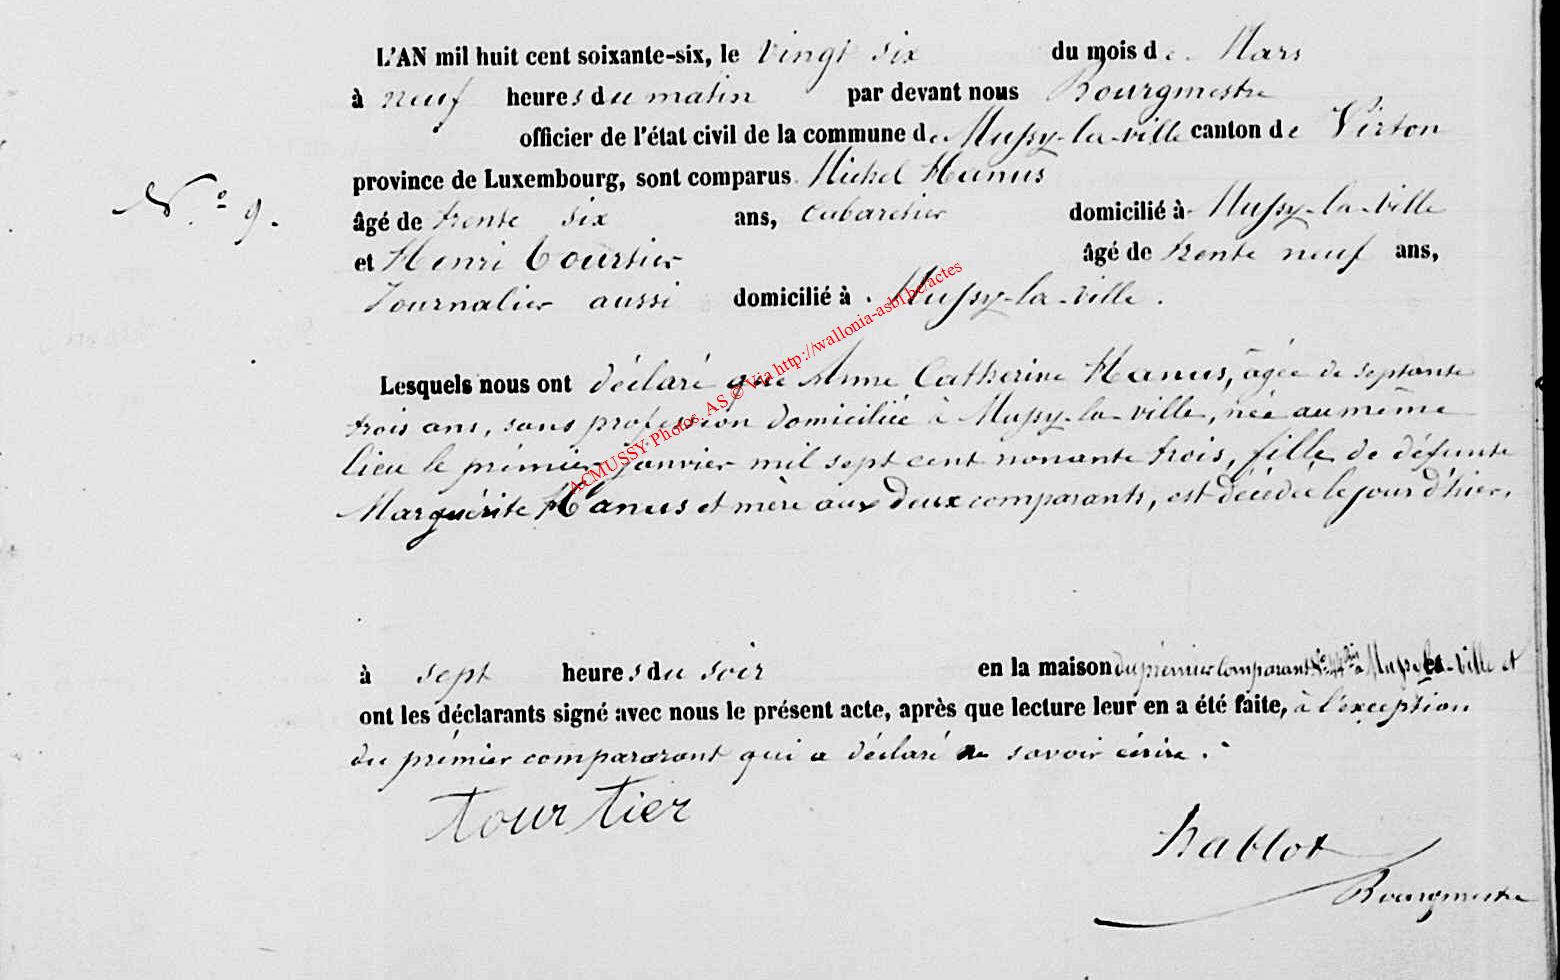 L'AN mil huit cent soixante-six, le vingt six du mois de Mars
à neuf heures du matin par devant nous Bourgmestre
officier de l'état civil de la commune de Mussy-la-ville canton de Virton
province de Luxembourg, sont comparus Michel Hanus
N.º 9.
âgé de trente six ans, Cabaretier domicilié à Mussy-la-ville
et Henri Tourtier âgé de trente neuf ans,
Journalier aussi domicilié à Mussy-la-ville.
Lesquels nous ont déclaré que Anne Catherine Hanus, âgée de septante
trois ans, sans profession domiciliée à Mussy-la-ville, née au même
lieu le prémier janvier mil sept cent nonante trois, fille de défunte
Marguérite Hanus et mère aux deux comparants, est décédée le jour d'hier,
ACMUSSY Photos. AS © Via http://wallonia-asbl.be/actes
à sept heures du soir en la maison du prémier Comparant Nº à Mussy-la-Ville et
ont les déclarants signé avec nous le présent acte, après que lecture leur en a été faite, à l'exception
du prémier compararant qui a déclaré ne savoir écrire.
tourtier
Hablot
Bourgmestre